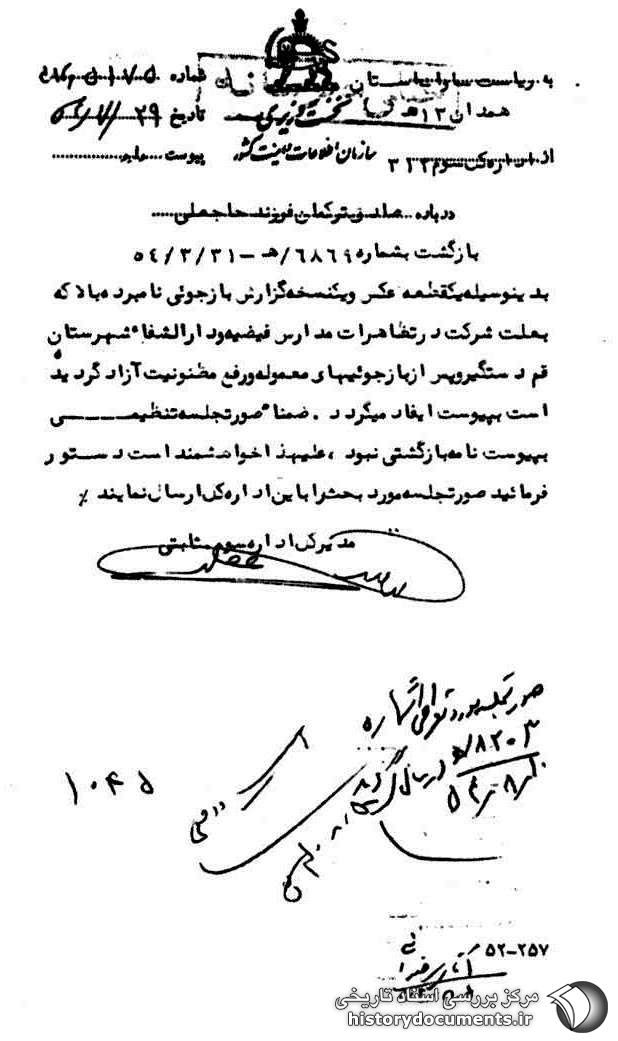 به ریاست ساواک استان
شماره
همدان ۱۳ هـ
نخست وزیری
تاریخ ۲۹
از اداره کل سوم ۳۱۲
سازمان اطلاعات و امنیت کشور
پیوست دارد
درباره فرزند حاجعلی
بازگشت بشماره ۶۸۶۹/هـ - ۵۴/۳/۳۱
بدینوسیله یکقطعه عکس ویکنسخه گزارش بازجوئی نامبرده بالا که
بعلت شرکت در تظاهرات مدارس فیضیه ودارالشفاء شهرستان
قم دستگیروپس ازبازجوئیهای معموله ورفع مظنونیت آزاد گردیده
است بپیوست ایفاد میگردد . ضمناً صورتجلسه تنظیمی
بپیوست نامه بازگشتی نبود ، علیهذا خواهشمند است دستور
فرمائید صورتجلسه مورد بحث را باین اداره کل ارسال نمایند ٪
مدیرکل اداره سوم . ثابتی
صورتجلسه مورد
۸۲۰۳/هـ
ارسال گردید
۱۰۴۵
۵۲-۲۵۷
مرکز بررسی اسناد تاریخی
historydocuments.ir